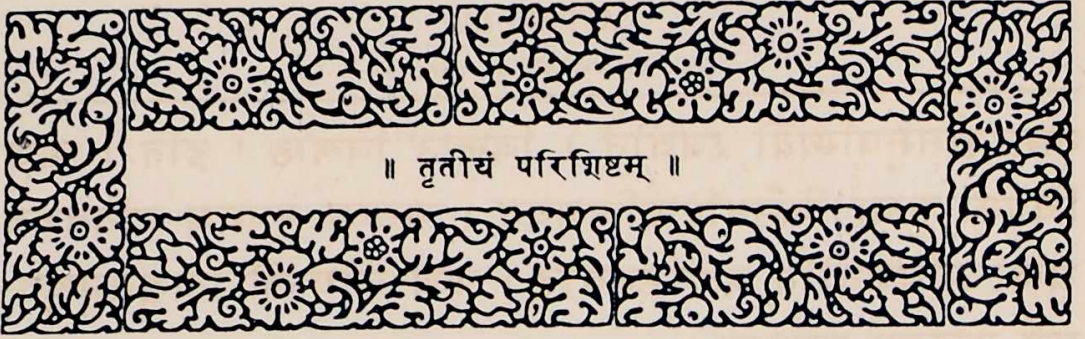 ॥ तृतीयं परिशिष्टम् ॥